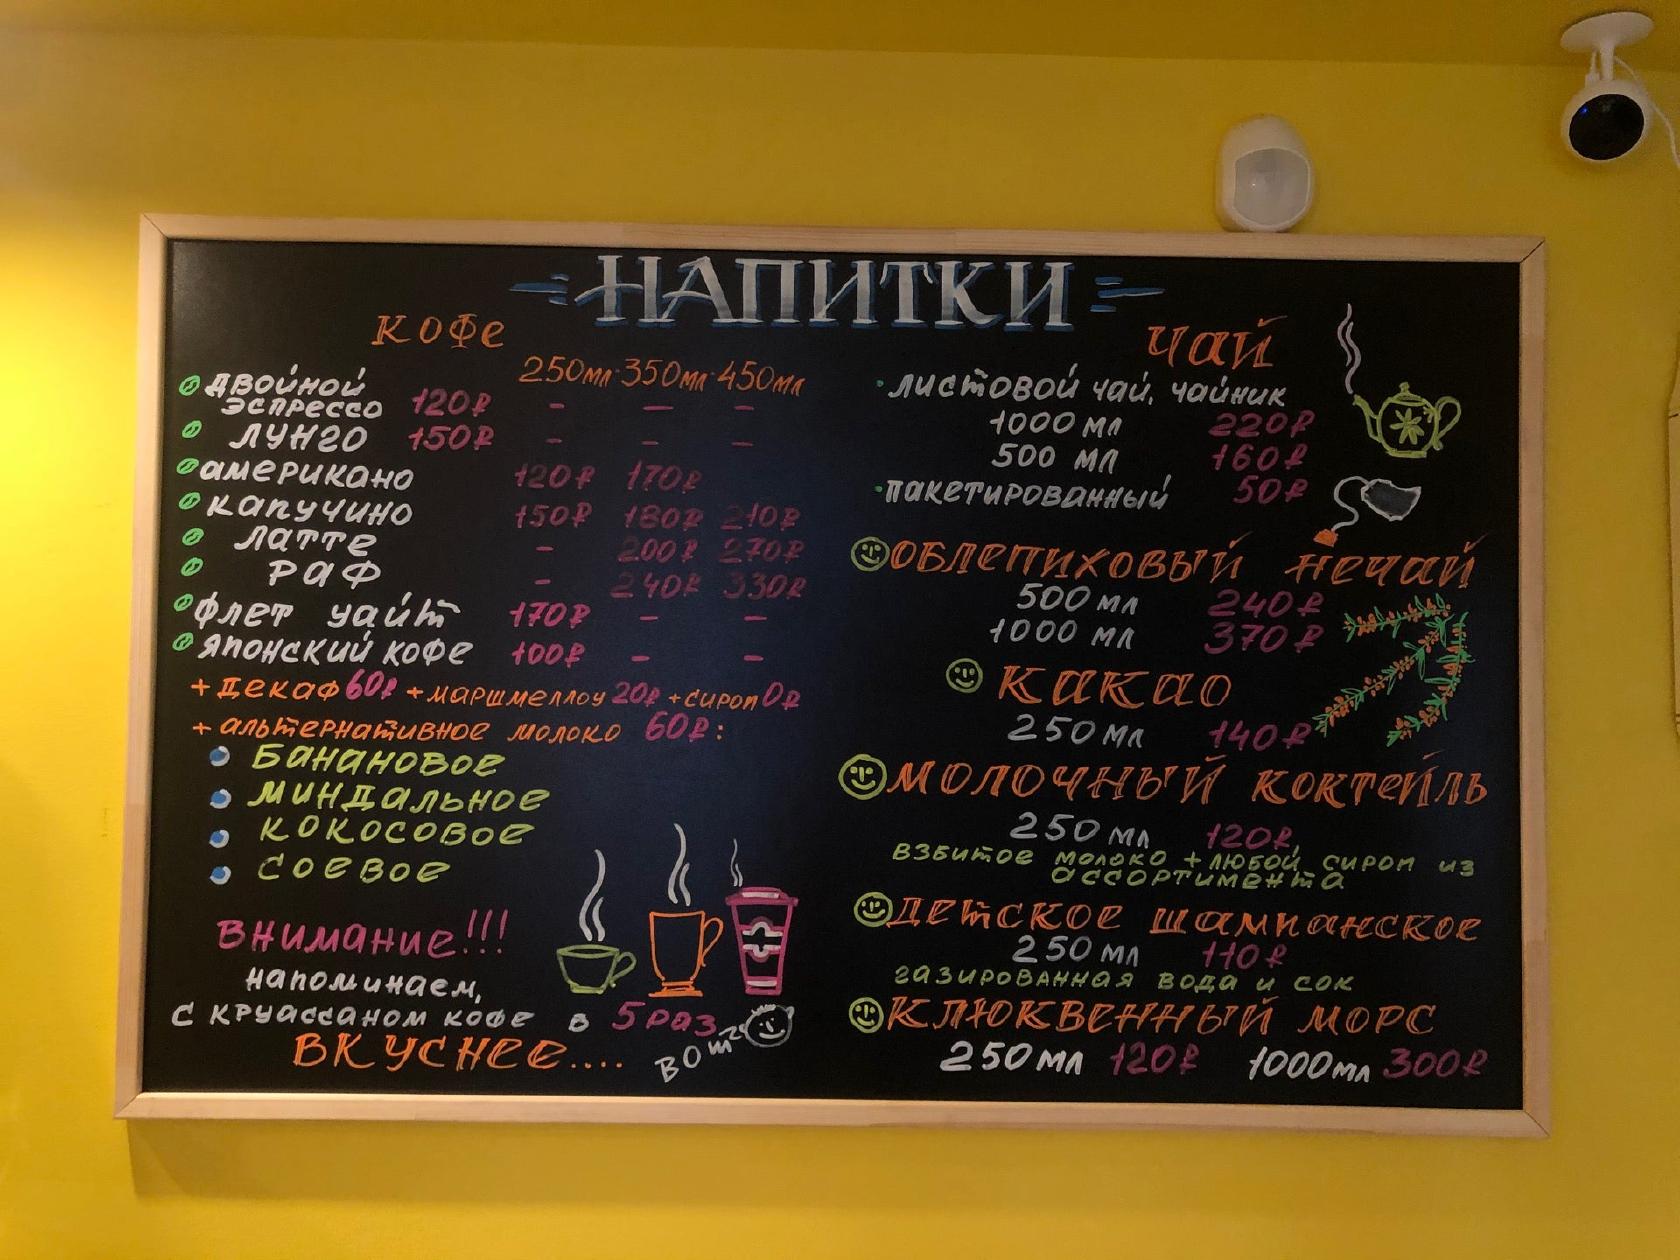 НАПИТКИ
Кофе
250мл 350мл 450мл
двойной
эспрессо 120₽ - - -
лунго 150₽ - - -
американо 120₽ 170₽
капучино 150₽ 180₽ 210₽
латте - 200₽ 270₽
раф - 240₽ 330₽
флет уайт 170₽ - -
японский кофе 100₽ - -
+декаф 60₽ +маршмеллоу 20₽ +сироп 0₽
+альтернативное молоко 60₽:
банановое
миндальное
кокосовое
соевое
Внимание!!!
напоминаем,
с круассаном кофе в 5 раз
ВКУСНЕЕ....
вот
Чай
·листовой чай, чайник
1000 мл 220₽
500 мл 160₽
·пакетированный 50₽
ОБЛЕПИХОВЫЙ НЕЧАЙ
500 мл 240₽
1000 мл 370₽
КАКАО
250 мл 140₽
МОЛОЧНЫЙ КОКТЕЙЛЬ
250 мл 120₽
взбитое молоко + любой сироп из
ассортимента
ДЕТСКОЕ ШАМПАНСКОЕ
250 мл 110₽
газированная вода и сок
КЛЮКВЕННЫЙ МОРС
250мл 120₽ 1000мл 300₽